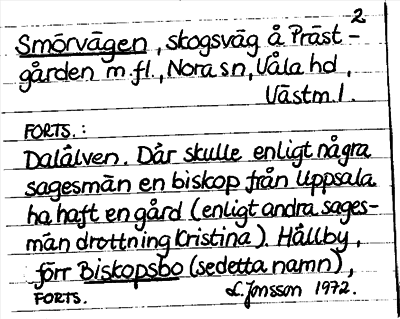 2
Smörvägen, skogsväg å Präst-
gården m.fl., Nora sn, Våla hd,
Västm.l.
FORTS.:
Dalälven. Där skulle enligt några
sagesmän en biskop från Uppsala
ha haft en gård (enligt andra sages-
män drottning Kristina). Hållby,
förr Biskopsbo (se detta namn),
FORTS. L. Jonsson 1972.